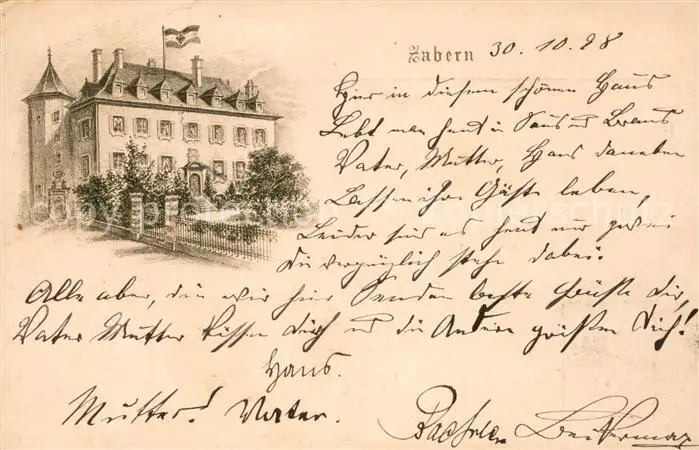 Zabern 30. 10. 98
Hier in diesem schönen Haus
Lebt man heut in Saus u Braus
Vater, Mutter, Hans daneben
Lassen ihre Gäste leben,
Leider sind es heut nur zwei
Die vergnüglich stehn dabei.
Alle aber, die wir hier senden beste Grüße dir,
Vater Mutter küssen dich u die Andern grüßen dich!
Hans.
Mutter! Vater.